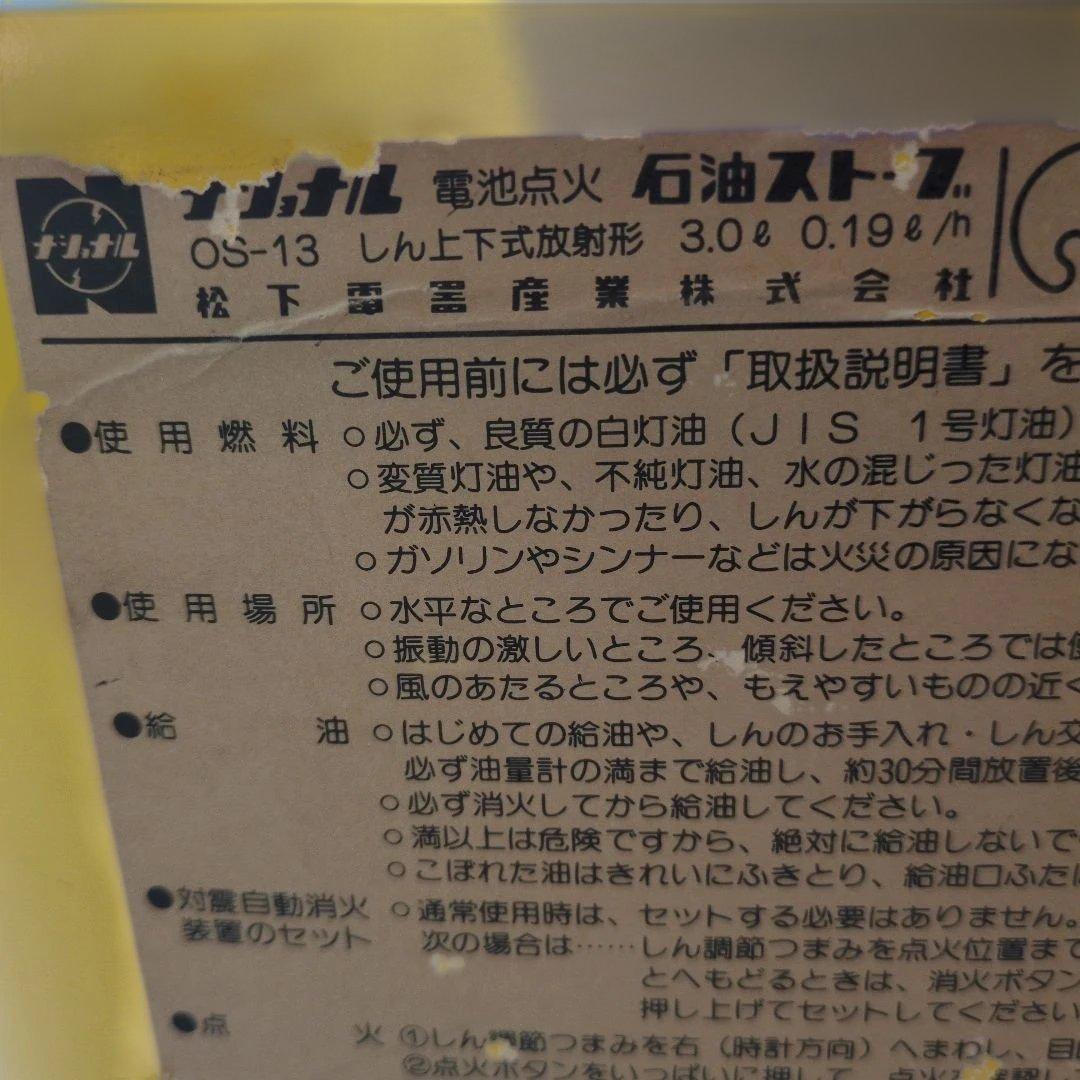 ナショナル
ナショナル 電池点火 石油ストーブ
OS-13 しん上下式放射形 3.0ℓ 0.19ℓ/h
松下電器産業株式会社
ご使用前には必ず「取扱説明書」を
●使用燃料 ○必ず、良質の白灯油(JIS 1号灯油)
○変質灯油や、不純灯油、水の混じった灯油
が赤熱しなかったり、しんが下がらなくな
○ガソリンやシンナーなどは火災の原因にな
●使用場所 ○水平なところでご使用ください。
○振動の激しいところ、傾斜したところでは使
○風のあたるところや、もえやすいものの近く
●給油 ○はじめての給油や、しんのお手入れ・しん交
必ず油量計の満まで給油し、約30分間放置後
○必ず消火してから給油してください。
○満以上は危険ですから、絶対に給油しないで
○こぼれた油はきれいにふきとり、給油口ふたは
●対震自動消火 ○通常使用時は、セットする必要はありません。
装置のセット 次の場合は……しん調節つまみを点火位置まで
とへもどるときは、消火ボタン
押し上げてセットしてください
●点火 ①しん調節つまみを右(時計方向)へまわし、目
②点火ボタンをいっぱいに押して、点火を確認し